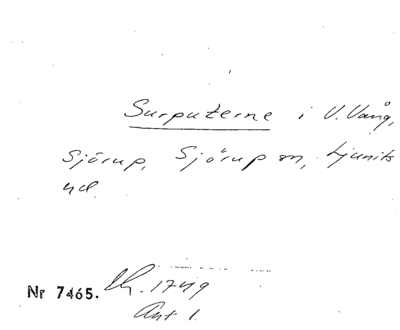 Surputerne i V. Vång,
Sjörup, Sjörup sn, Ljunits
hd.
Nr 7465. Lh. 1749
Ant 1.